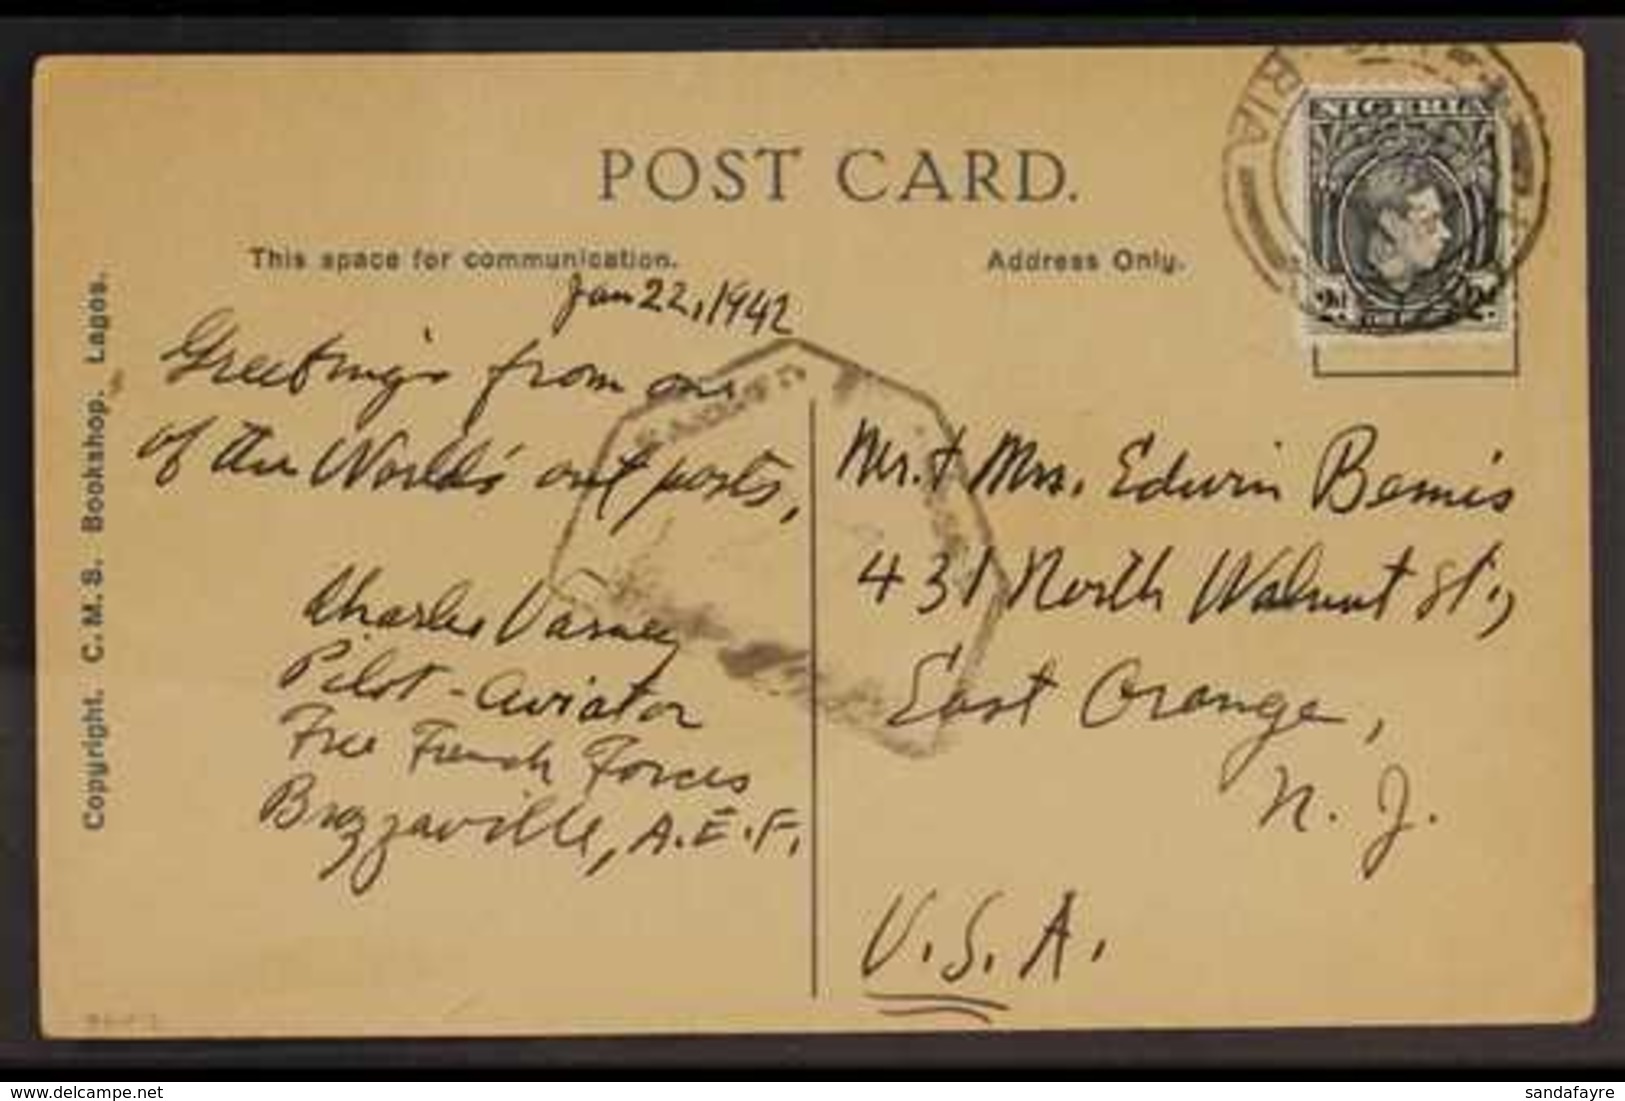 POST CARD.
This space for communication.
Address Only.
Jan 22, 1942
Greetings from one
of the World's out posts,
Charles Varney
Pilot - Aviator
Free French Forces
Brazzaville, A.E.F.
Mr. + Mrs. Edwin Bemis
431 North Walnut St.,
East Orange,
N. J.
U.S.A.
Copyright. C. M. S. Bookshop. Lagos.
NIGERIA
2d 2d
RIA
www.delcampe.net
sandafayre